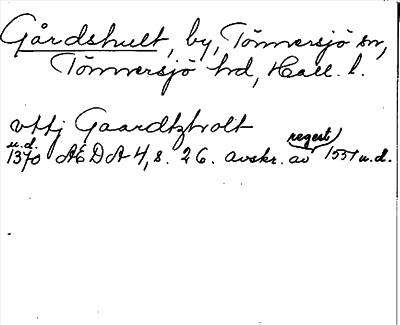 Gårdshult, by, Tönnersjö sn,
Tönnersjö hd, Hall. l.
vttj Gaardtzholt
u.d. regest
1370 AEDA 4, s. 26. avskr. av 1551 u.d.